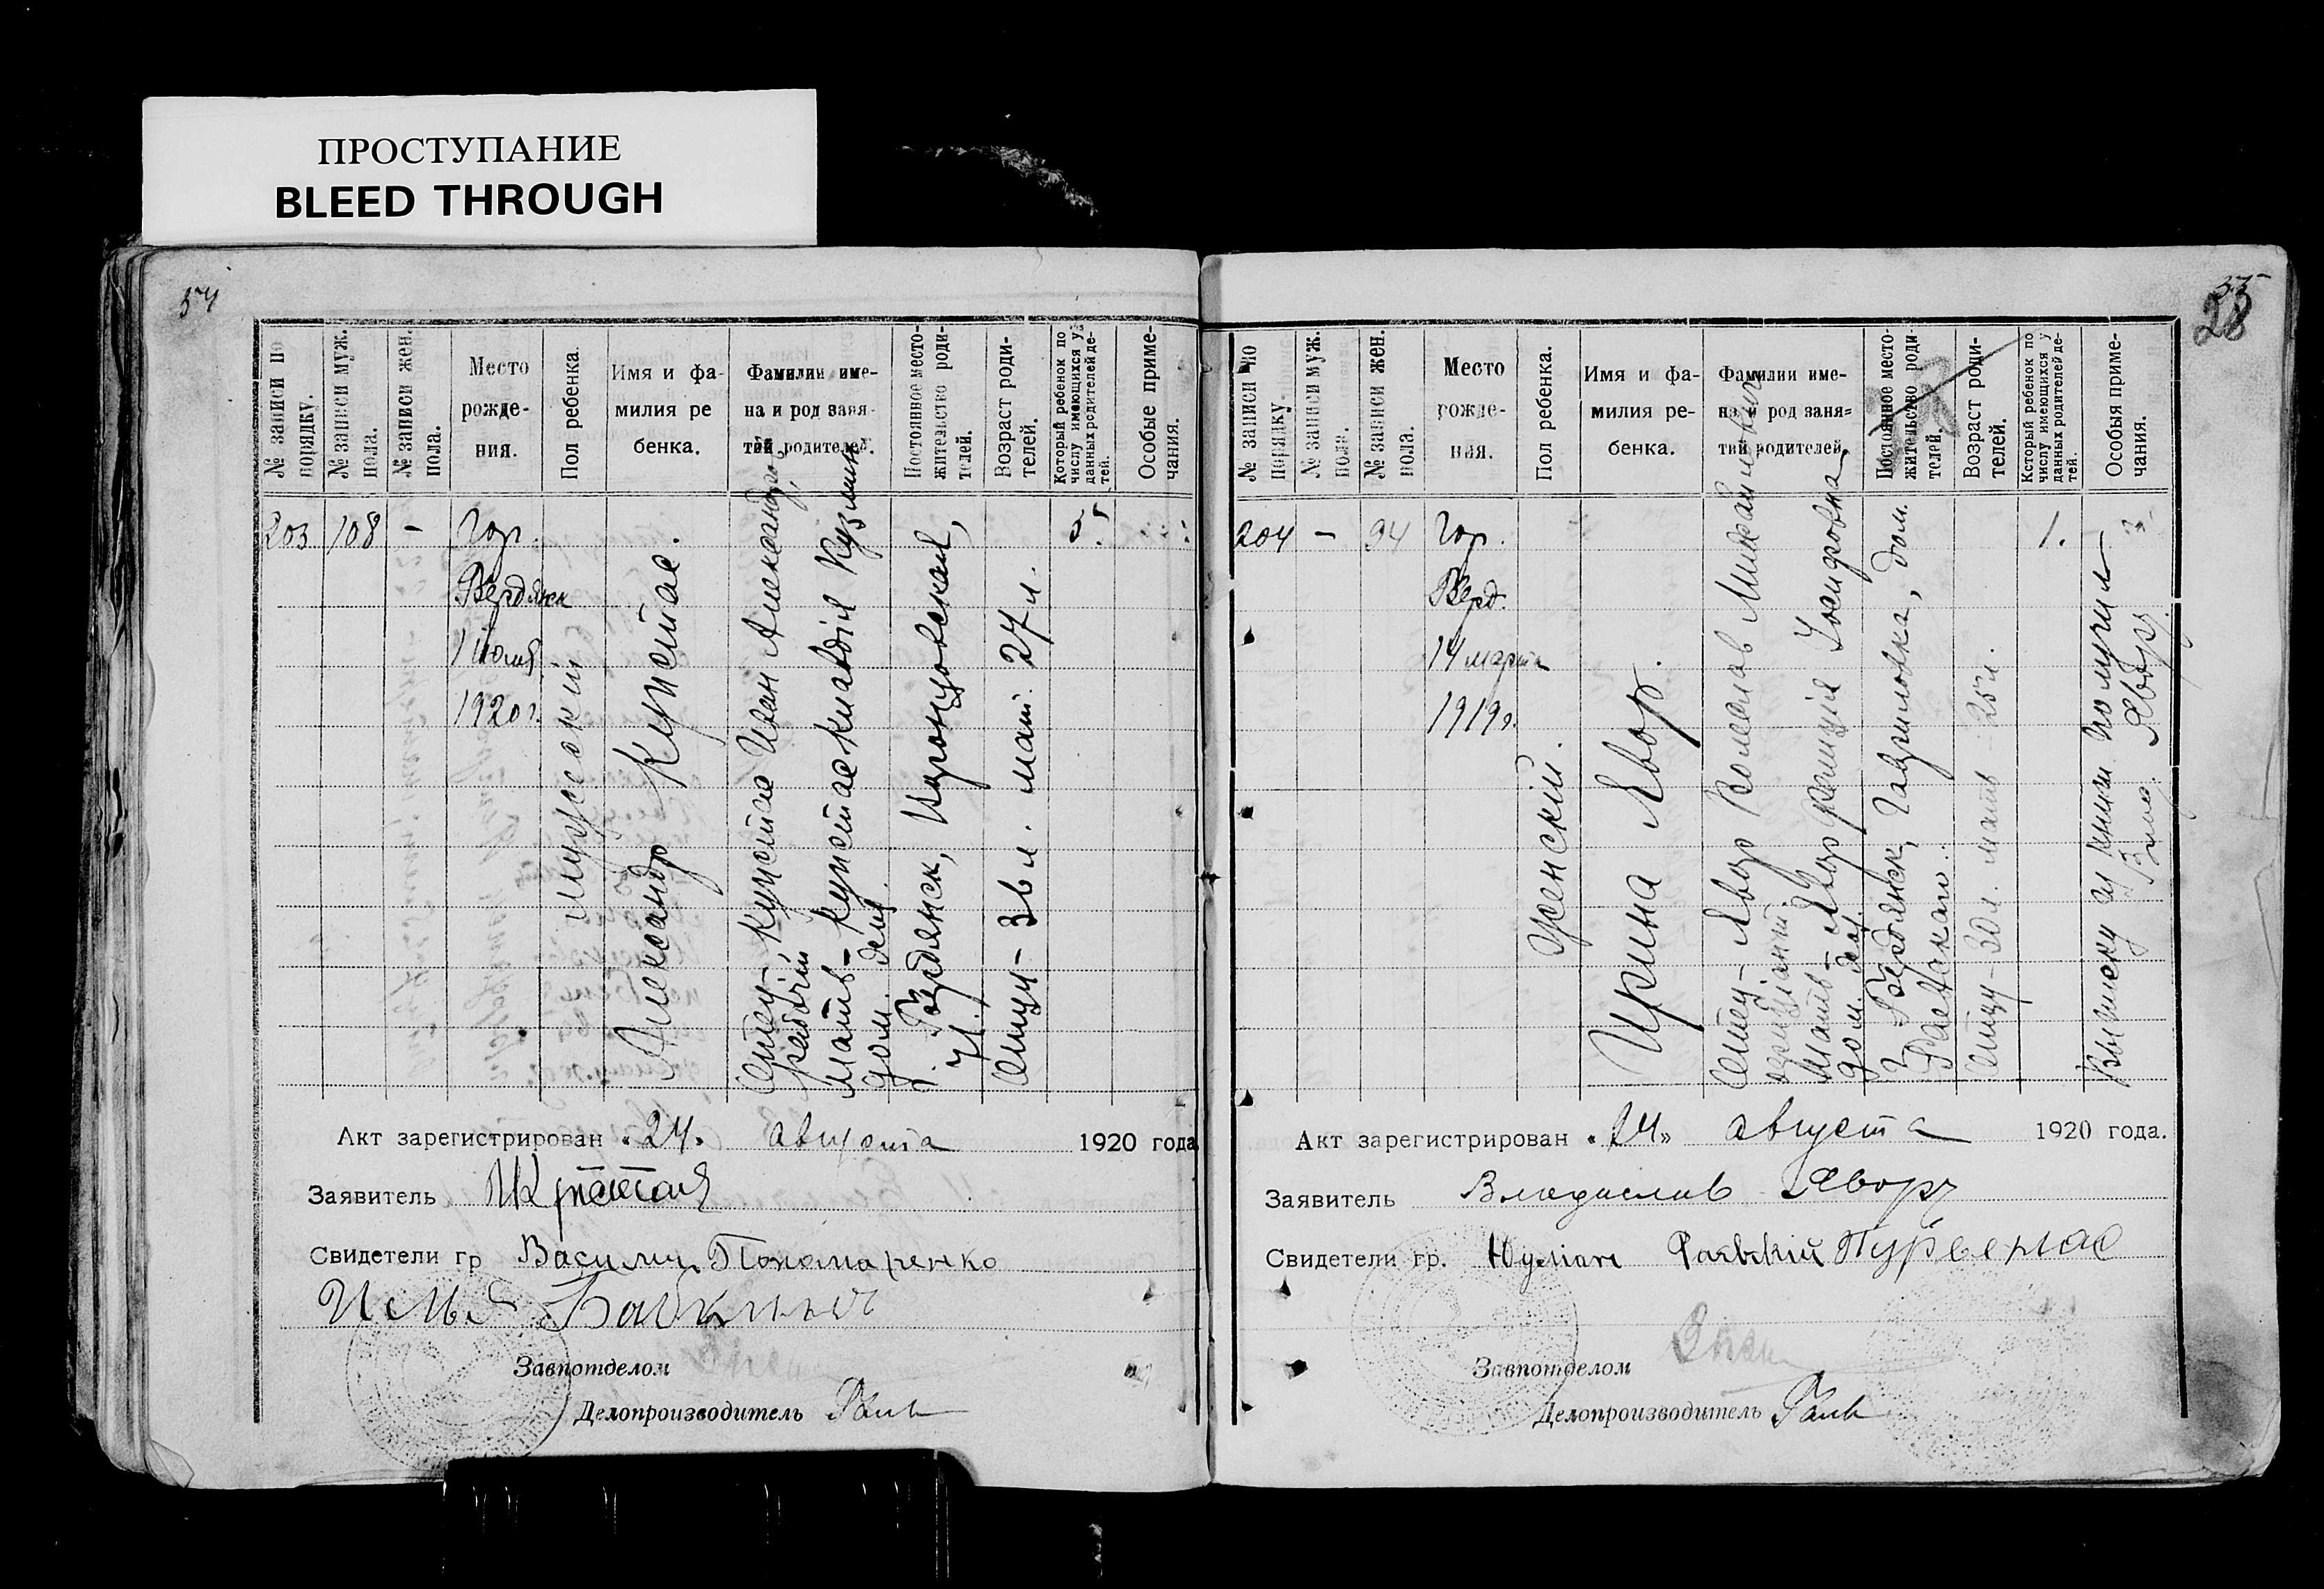 ПРОСТУПАНИЕ
BLEED THROUGH
54
№ записи по порядку.
№ записи муж. пола.
№ записи жен. пола.
Место рожде-ния.
Пол ребенка.
Имя и фа-милия ре бенка.
Фамилии име-на и род заня-тий родителей.
Постоянное место-жительство роди-телей.
Возраст роди-телей.
Который ребенок по числу имеющихся у данных родителей де-тей.
Особые приме-чания.
203
108
-
Гор.
Бердянск
1 июля
1920 г.
мужской
Александр
Отец
Иван Александр
рабочий
Мать -
Клавдія Кузьмин
дом. дела
г. Бердянск, Воронцовская,
Отцу - 36 л. мат. 27 л.
5.
Акт зарегистрирован „24„ августа 1920 года
Заявитель
Свидетели гр Василий Пономаренко
Завпотделом
Делопроизводитель
28
№ записи по порядку.
№ записи муж. пола.
№ записи жен. пола.
Место рожде-ния.
Пол ребенка.
Имя и фа-милия ре-бенка.
Фамилии име-на и род заня-тий родителей.
Постоянное место-жительство роди-телей.
Возраст роди-телей.
Который ребенок по числу имеющихся у данных родителей де-тей.
Особыя приме-чания.
204
-
94
Гор.
Берд.
14 марта
1919 г.
женскій.
Ирина Явор.
Отец - Явор Болеслав Михайлович
Мать - Явор Іосифовна
дом. дела
г. Бердянск,
дом.
Отцу - 30 л. мать - 25 л.
1.
Выписку из книги получил
Явор
Акт зарегистрирован „24„ августа 1920 года.
Заявитель Владислав Яворъ
Свидетели гр. Юлиан
Завпотделом
Делопроизводитель